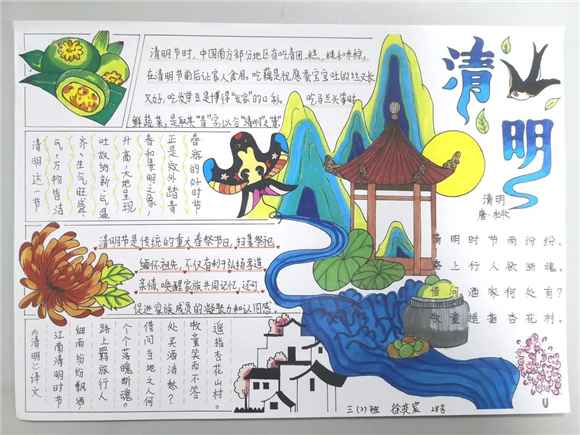 清明
清明节时，中国南方部分地区有吃青团、糕、粿和米粽，
在清明节前后让家人食用。吃藕是祝愿蚕宝宝吐的丝又长
又好，吃发芽豆是博得"发家"的口彩。吃马兰头等时
鲜蔬菜，是取其"青"字，以合"清明"之"青"。
清明这一节
气，万物皆洁
齐，生气旺盛
吐故纳新，气温
升高，大地呈现
春和景明之象，
正是郊外踏青
春游的好时节
清明节是传统的重大春祭节日，扫墓祭祀、
缅怀祖先，不仅有利于弘扬孝道
亲情、唤醒家族共同记忆，还可
促进家族成员的凝聚力和认同感。
清明
唐·杜牧
清明时节雨纷纷，
路上行人欲断魂。
借问酒家何处有？
牧童遥指杏花村。
《清明》译文
江南清明时节
细雨纷纷飘洒，
路上羁旅行人
个个落魄断魂。
借问当地之人何
处买酒浇愁？
牧童笑而不答
遥指杏花山村。
三(2)班 徐奕宸 28号